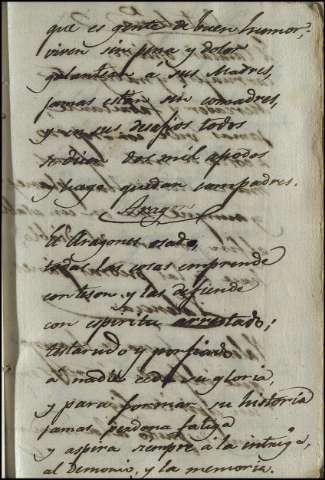 que es gente de buen humor,
viven sin pena y dolor
galantean á sus Madres,
jamas estan sin comadres,
y en sus desafios todos
se dicen dos mil apodos
y luego quedan compadres.
Aragon
El Aragones osado,
todas las cosas emprende
con teson y las defiende
con espiritu arrestado;
testarudo y porfiado
á nadie cede su gloria,
y para formar su historia
jamas perdona fatiga
y aspira siempre á la intriga,
al demonio, y la memoria.